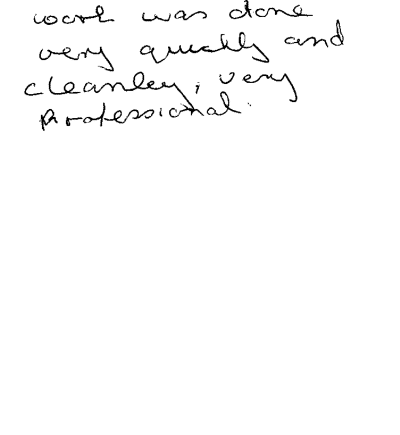 work was done
very quickly and
cleanley, very
professional.